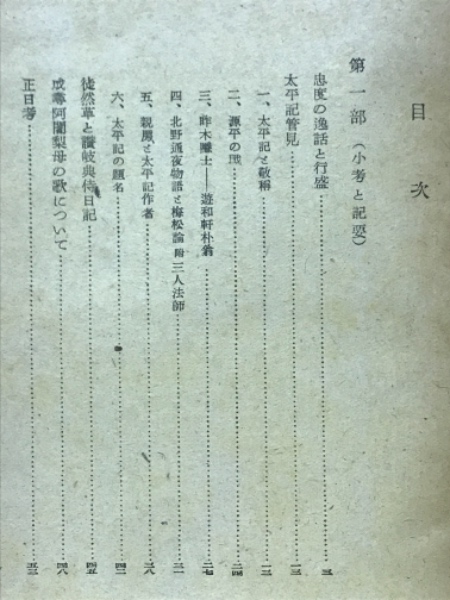 目次
第一部（小考と記要）
忠度の逸話と行盛 三
太平記管見 一三
一、太平記と敬称 一三
二、源平の戦 二四
三、昨木隠士――遊和軒朴翁 二七
四、北野通夜物語と梅松論 附 三人法師 三一
五、親房と太平記作者 三八
六、太平記の題名 四二
徒然草と讃岐典侍日記 四五
成尋阿闍梨母の歌について 四八
正日考 五三